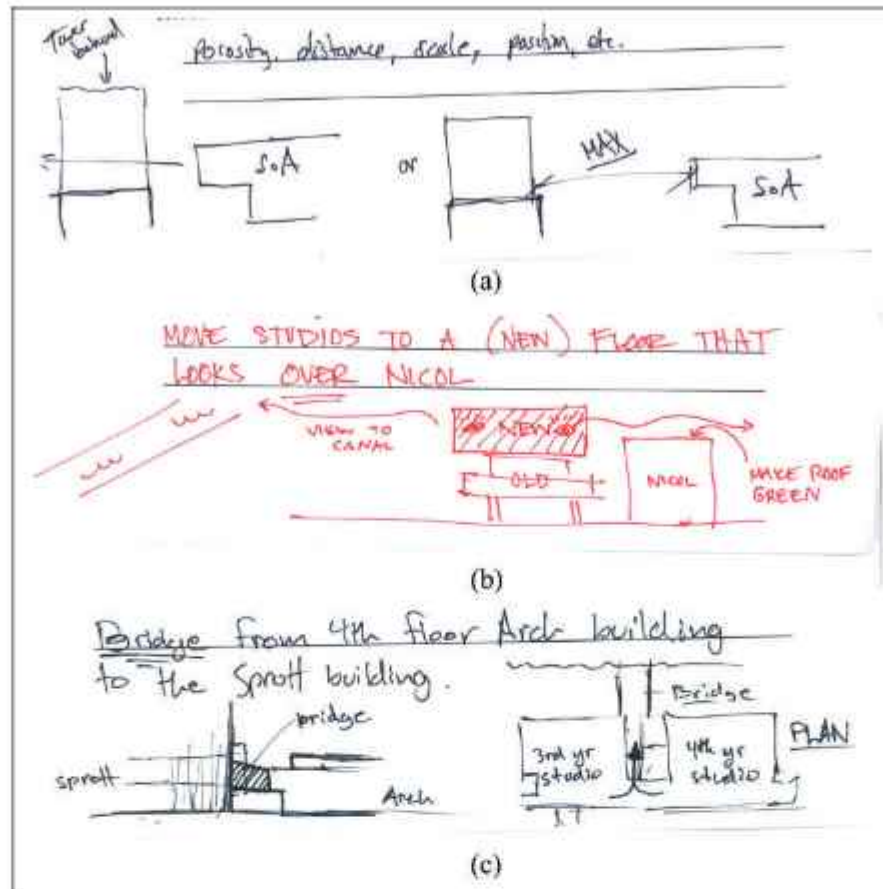 Tower behind
porosity, distance, scale, position, etc.
SoA
or
MAX
SoA
(a)
MOVE STUDIOS TO A (NEW) FLOOR THAT
LOOKS OVER NICOL
VIEW TO
CANAL
NEW
OLD
NICOL
MAKE ROOF
GREEN
(b)
Bridge from 4th floor Arch building
to the Sprott building.
bridge
sprott
Arch
Bridge
3rd yr
studio
4th yr
studio
PLAN
(c)